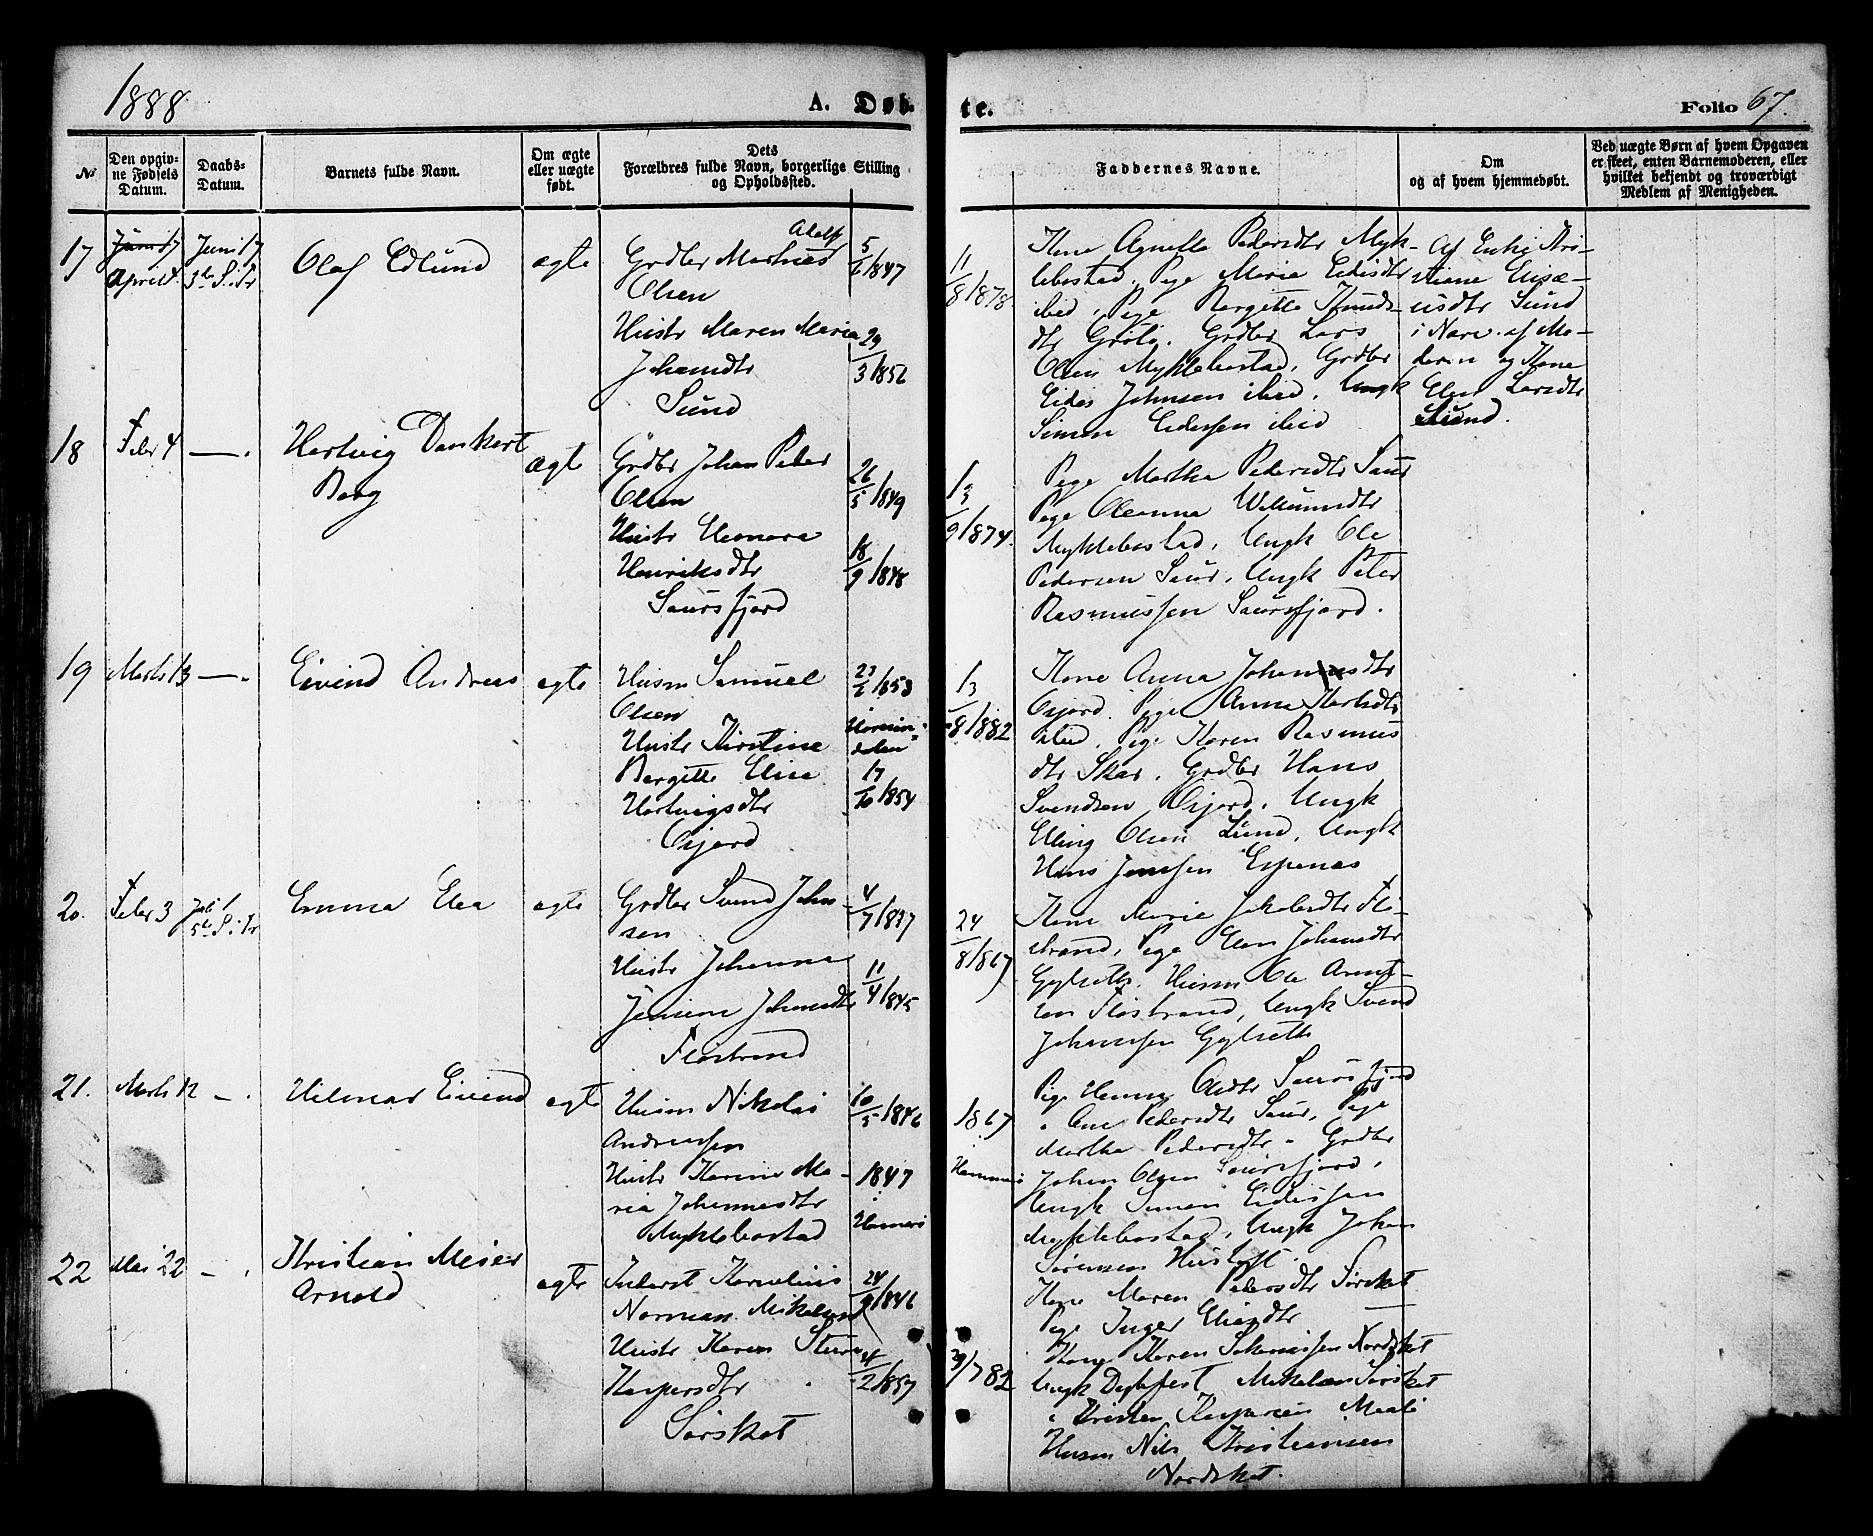 1888
A. Døb-
te.
Folio 67.
No
Den opgiv-
ne Fødsels
Datum.
Daabs-
Datum.
Barnets fulde Navn.
Om ægte
eller uægte
født.
Dets
Forældres fulde Navn, borgerlige Stilling
og Opholdssted.
Faddernes Navne.
Om
og af hvem hjemmedøbt.
Ved uægte Børn af hvem Opgaven
er skeet, enten Barnemoderen, eller
hvilket bekjendt og troværdigt
Medlem af Menigheden.
17
Juni 17
April
Juni 17
3de S. f. Tr
Olaf Edlund
ægte
Adolf
Grdbr Martines
Olsen
Hustr Maren Maria
Johansdtr
Sund
5/1847
29/3 1856
11/8 1878
Kone Agnethe Pedersdtr Myk-
lebostad, Pige Marie Eidisdtr
ibid, Pige Bergitte Knuds-
dtr Grötö. Grdbr Lars
Olsen Myklebostad, Grdbr
Eidis Johnsen ibid, Ungk
Simon Edissen ibid
Af Enke Kri-
stiane Elisæ-
usdtr Sund
i Nærv. af Mo-
deren og Kone
Elen Larsdtr
Sund.
18
Febr 4
—.
Hartvig Dankert
Berg
ægte
Grdbr Johan Peter
Olsen
Hustr Eleonora
Henriksdtr
Saursfjord
26/5 1849
18/9 1848
13/9 1874.
Pige Martha Pedersdtr Saur
Pige Oleanna Willumsdtr
Myklebostad, Ungk Ole
Pedersen Saur, Ungk Peter
Rasmussen Saursfjord.
19
Marts 13
—.
Eivind Andreas
ægte
Husm Samuel
Olsen
Hustr Kirstine
Bergitte Elisa
Hartvigsdtr
Osjord
1853
17/10 1854
13/8 1882
Kone Anna Johannesdtr
Osjord. Pige Anna
ibid, Pige Karen Rasmus
dtr Skar, Grdbr Hans
Svendsen Osjord, Ungk
Elling Olsen Lund, Ungk
Hans Jensen Espenæs
20.
Febr 3
Juli 1
5te S. f. Tr
Emma Elea
ægte
Grdbr Svend John
sen
Hustr Johanna
Jensine Johansdtr
Flostrand
4/7 1837
11/4 1845
24/8 1867
Kone Marie Jakobsdtr Flo-
strand, Pige Elen Johansdtr
Gyltvik. Husm Ole Arnt-
sen Flostrand, Ungk Svend
Johansen
21.
Marts 12
—.
Hilmar Eivind
ægte
Husm Nikolai
Andreassen
Hustr Karine Ma-
ria Johannesdtr
Myklebostad
10/5 1846
1847
Hamarö
1867
Hammerö
Pige Hanna Olsdtr Saursfjord
" Ane Pedersdtr Saur, Pige
Martha Pedersdtr " Grdbr
Johan Olsen Saursfjord,
Ungk Simon Eidissen
Myklebostad, Ungk Johan
Sörensen Hustoft.
22
Mai 22
—.
Kristian Meier
Arnold
ægte
Inderst Kornelius
Norman Mikelsen
Hustr Karen
Kaspersdtr
Sørskot
24/9 1846
1857
29/7 82
Kone Maren Pedersdtr Sørskot
Pige Inger Eliasdtr —
Kone Karen Johannessen Nordskot
Ungk Mikelsen Sørskot
" Kristen Kaspersen
Husm Nils Kristiansen
Nordskot.